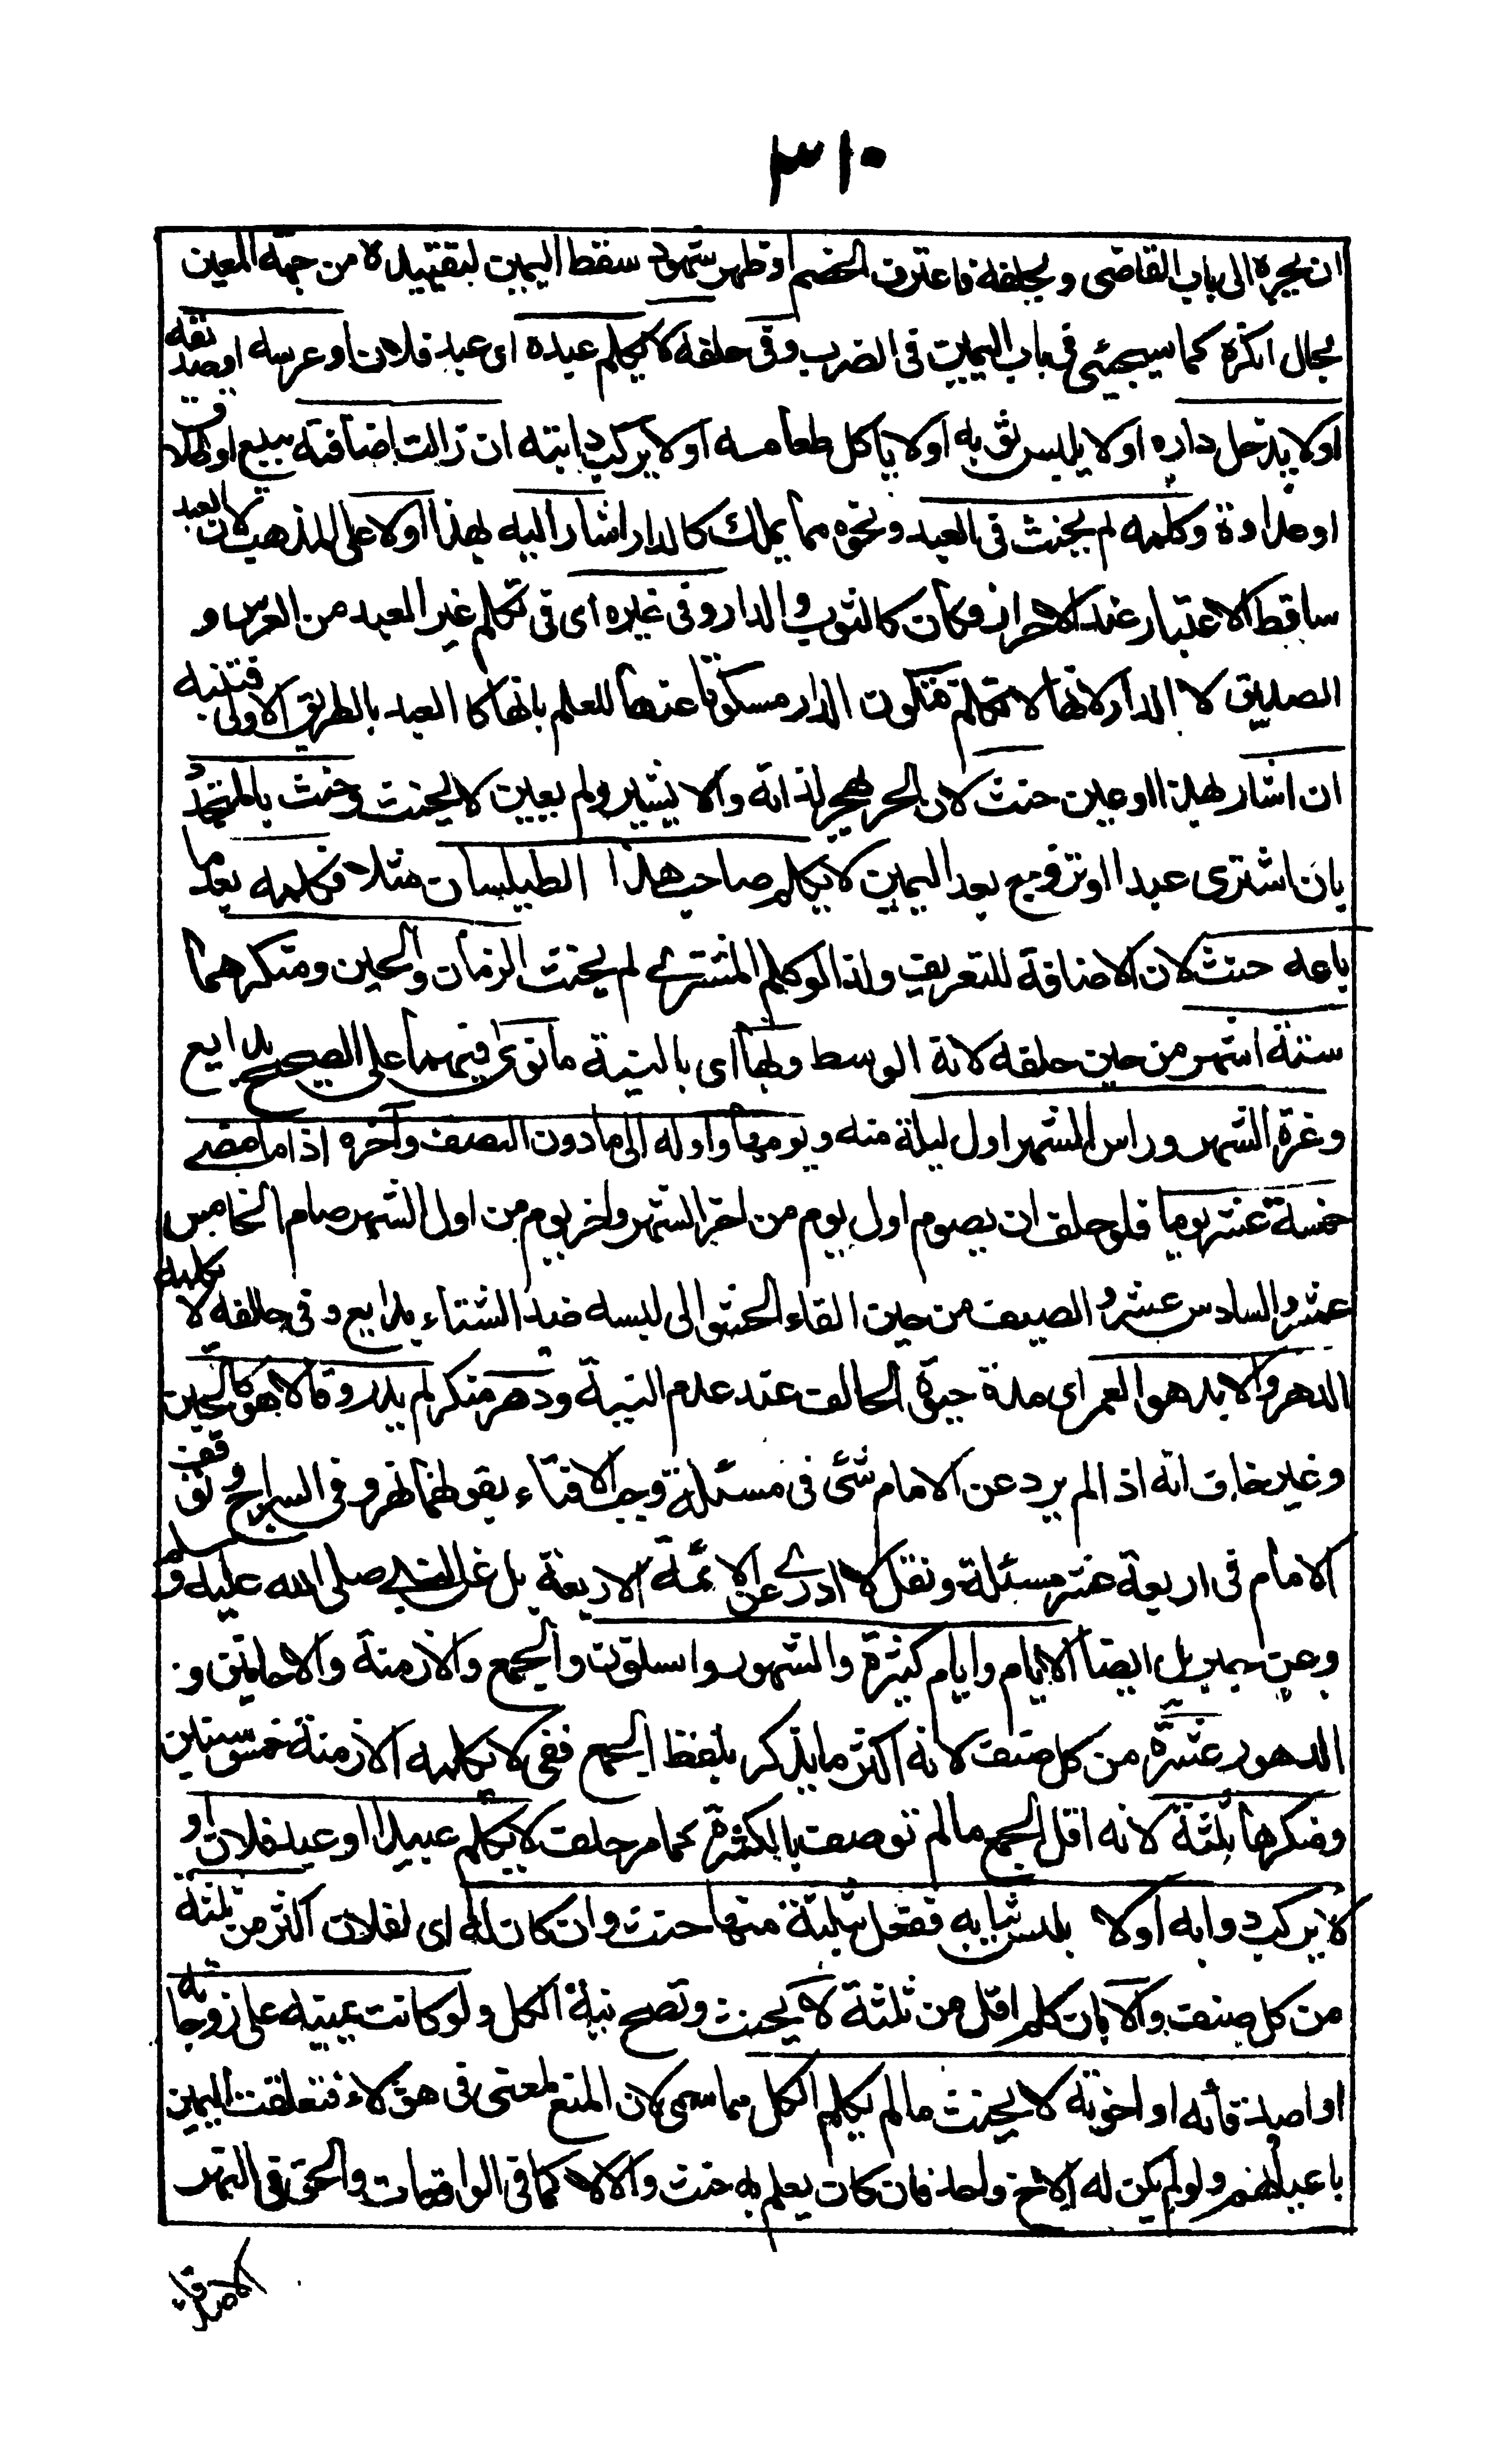 ٣١٠
ان يجره الى باب القاضى ويحلفه فاعترف الخصم او ظهر شهود سقط اليمين لتقييده من جهة المعين
بحال انكره كما سيجئ فى باب اليمين فى الضرب وفى حلفه لا يكلم عبده اى عبد فلان او عرسه او صديقه
اولا يدخل داره اولا يلبس ثوبه اولا ياكل طعامه اولا يركب دابته ان زالت اضافته ببيع او طلاق
او عداوة وكلمه لم يحنث فى العبد ونحوه مما يملك كالدار اشار اليه بهذا اولا على المذهب لان العبد
ساقط الاعتبار عند الاحرار فكان كالثوب والدار وفى غيره اى فى تكلم غير العبد من العرس و
الصديق لا الدار لانها لا تتكلم فتكون الدار مسكوتا عنها للعلم بانها كالعبد بالطريق الاولى فتنبه
ان اشار بهذا او عين حنث لان الحر يهجر لذاته والا يشير ولم يعين لا يحنث وحنث بالمتجدد
بان اشترى عبدا او تزوج بعد اليمين لا يكلم صاحب هذا الطيلسان مثلا فكلمه بعد ما
باعه حنث لان الاضافة للتعريف ولذا لو كلم المشترى لم يحنث الزمان والحين ومنكرهما
ستة اشهر من حين حلفه لانه الوسط وبها اى بالنية ما نوى فيهما على الصحيح بدايع
وغرة الشهر وراس الشهر اول ليلة منه ويومها واوله الى ما دون النصف وآخره اذا مضى
خمسة عشر يوما فلو حلف ان يصوم اول يوم من اخر الشهر واخر يوم من اول الشهر صام الخامس
عشر والسادس عشر و الصيف من حين القاء الحشو الى لبسه ضد الشتاء بدايع وفى حلفه لا يكلمه
الدهر والابد هو العمر اى مدة حيوة الحالف عند عدم النية ودهر منكر لم يدر وقالا هو كالحين
وغير خاف انه اذا لم يرد عن الامام شئ فى مسئلة وجب الافتاء بقولهما نهر وفى السراج وتوقف
الامام فى اربعة عشر مسئلة ونقل لا ادرى عن الائمة الاربعة بل عن النبى صلى الله عليه وسلم
وعن جبريل ايضا الايام وايام كثيرة والشهور والسنون والجمع والازمنة والاحايين و
الدهور عشرة من كل صنف لانه اكثر ما يذكر بلفظ الجمع ففى لا يكلمه الازمنة خمس سنين
ومنكرها ثلثة لانه اقل الجمع ما لم توصف بالكثرة كما مر حلف لا يكلم عبيدا او عبيد فلان او
لا يركب دوابه اولا يلبس ثيابه ففعل بثلثة منها حنث وان كان له اى لفلان اكثر من ثلثة
من كل صنف والا بان كلم اقل من ثلثة لا يحنث وتصح نية الكل ولو كانت يمينه على زوجاته
او اصدقائه او اخوته لا يحنث ما لم يكلم الكل مما سمى لان المنع لمعنى فى هؤلاء فتعلقت اليمين
باعيانهم ولو لم يكن له الا اخ واحد فان كان يعلم به حنث والا لا كما فى الواقعات والحق فى النهر